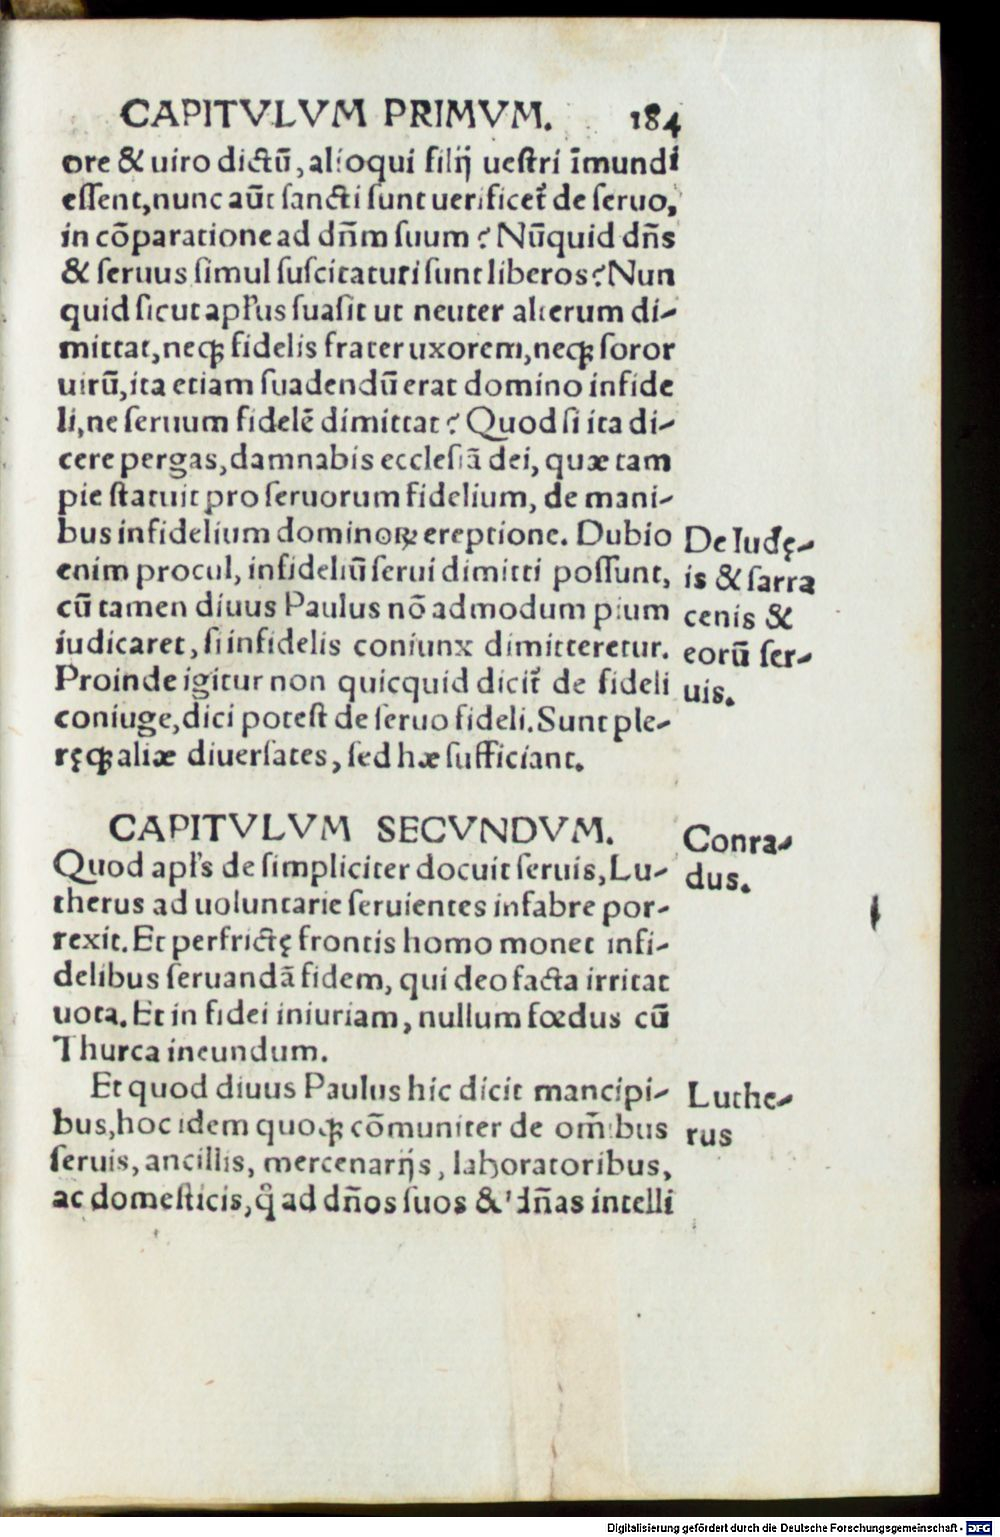 CAPITVLVM PRIMVM. 184
ore & uiro dictū, alioqui filij uestri īmundi
essent, nunc aūt sancti sunt uerificet᷑ de seruo,
in cōparatione ad dn̄m suum? Nūquid dn̄s
& seruus simul suscitaturi sunt liberos? Nun
quid sicut apl'us suasit ut neuter alterum di-
mittat, neqꝫ fidelis frater uxorem, neqꝫ soror
uirū, ita etiam suadendū erat domino infide
li, ne seruum fidelē dimittat? Quod si ita di-
cere pergas, damnabis ecclesiā dei, quæ tam
pie statuit pro seruorum fidelium, de mani-
bus infidelium dominoꝝ ereptione. Dubio
enim procul, infideliū serui dimitti possunt,
cū tamen diuus Paulus nō admodum pium
iudicaret, si infidelis coniunx dimitteretur.
Proinde igitur non quicquid dicit᷑ de fideli
coniuge, dici potest de seruo fideli. Sunt ple-
ręqꝫ aliæ diuersates, sed hæ sufficiant.
De Iudę-
is & sarra
cenis &
eorū ser-
uis.
CAPITVLVM SECVNDVM.
Quod apl's de simpliciter docuit seruis, Lu-
therus ad uoluntarie seruientes infabre por-
rexit. Et perfrictę frontis homo monet infi-
delibus seruandā fidem, qui deo facta irritat
uota. Et in fidei iniuriam, nullum fœdus cū
Thurca ineundum.
Conra-
dus.
Et quod diuus Paulus hic dicit mancipi-
bus, hoc idem quoqꝫ cōmuniter de om̄ibus
seruis, ancillis, mercenarijs, laboratoribus,
ac domesticis, q̄ ad dn̄os suos & dn̄as intelli
Luthe-
rus
Digitalisierung gefördert durch die Deutsche Forschungsgemeinschaft - DFG